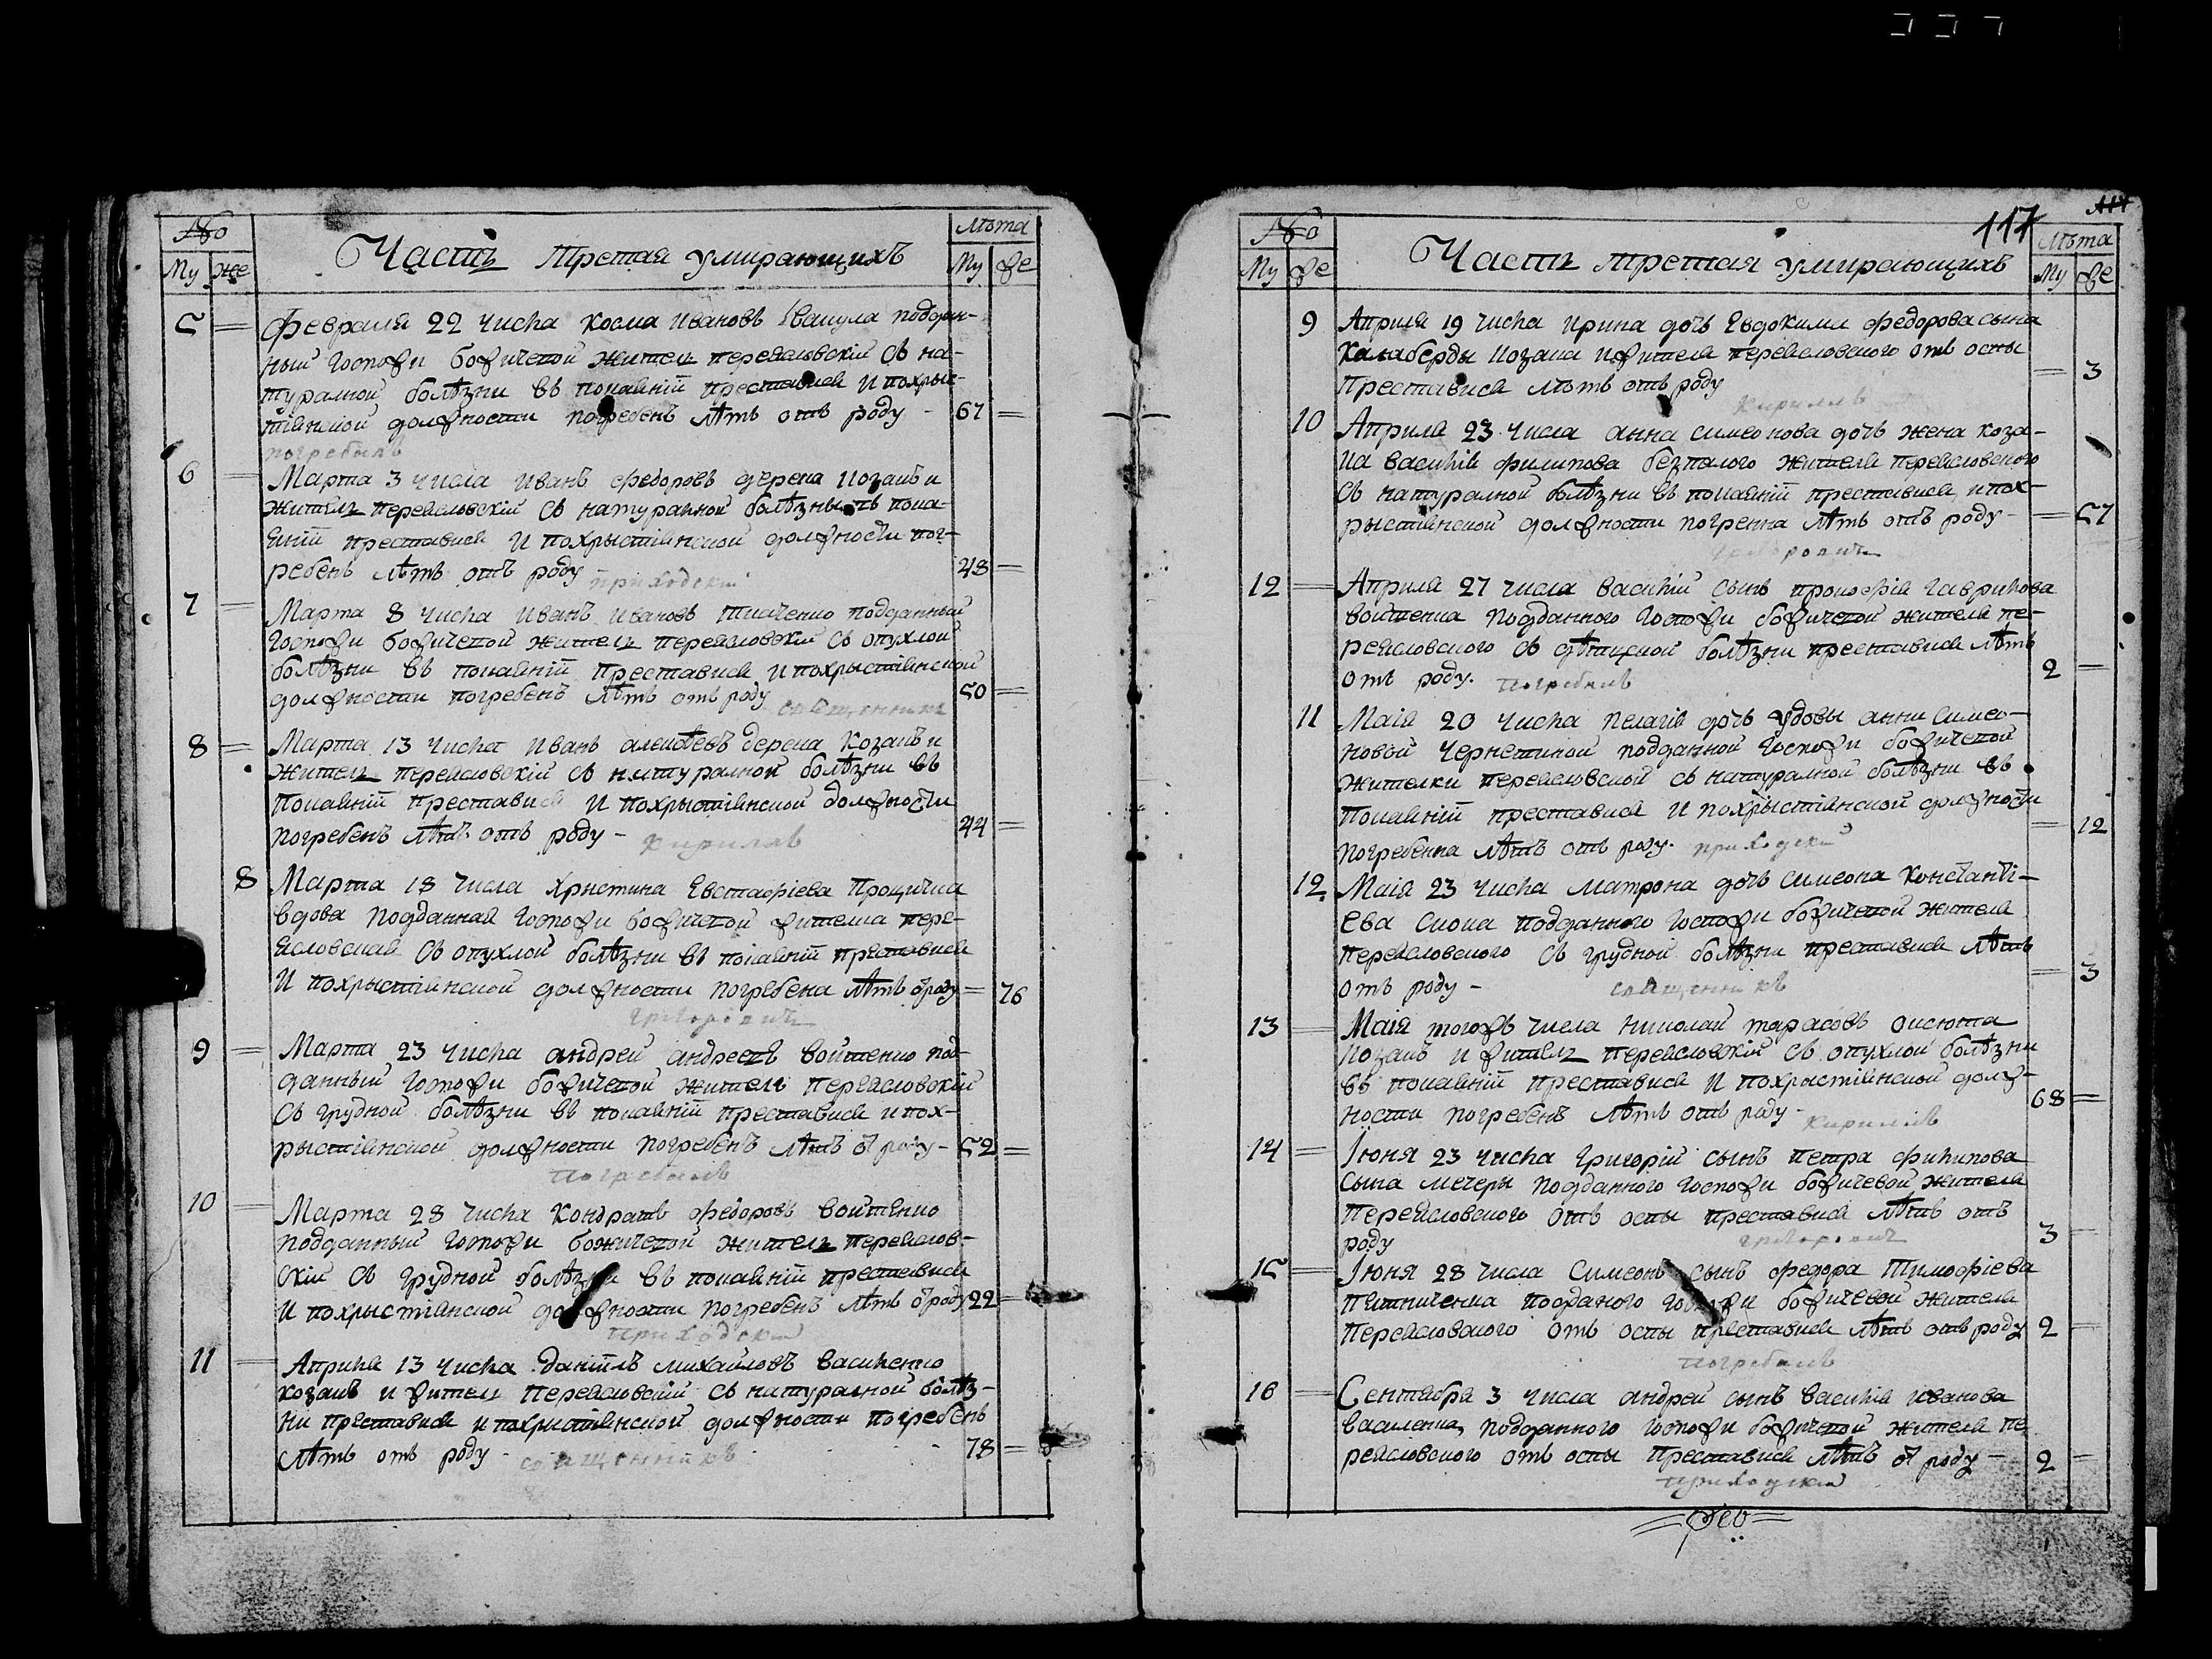 №
Му же
Часть третая умирающихъ
лѣта
Му же
5 Февраля 22 числа косма ивановъ подан-
ный Госпожи божичевой житель переясловскїй съ на-
туралной болѣзни въ покаянїй преставися и похрыс-
тїянской должности погребенъ лѣтъ отъ роду - 67
погребалъ
6 Марта 3 числа иванъ федоровъ дерека козакъ и
житель переясловскїй съ натуралной болѣзны въ пока-
янїй преставися и похрыстїянской должности пог-
ребенъ лѣтъ отъ роду 48
приходский
7 Марта 8 числа иванъ ивановъ ткаченко подданный
Госпожи божичевой житель переясловскїй съ опухлой
болѣзни въ покаянїй преставися и похрыстїянской
должности погребенъ лѣтъ отъ роду 50
священникъ
8 Марта 13 числа иванъ алексѣевъ дерека козакъ и
житель переясловскїй съ натуралной болѣзни въ
покаянїй преставися и похрыстїянской должности
погребенъ лѣтъ отъ роду - 44
кирилъ
8 Марта 18 числа христина Евстафїева
вдова подданная госпожи божичевой жителка пере-
ясловская съ опухлой болѣзни въ покаянїй преставися
и похрыстїянской должности погребена лѣтъ ѿ роду 76
григоровичъ
9 Марта 23 числа андрей андреевъ войтенко под-
данный госпожи божичевой житель переясловскїй
съ грудной болѣзни въ покаянїй преставися и пох-
рыстїянской должности погребенъ лѣтъ ѿ роду - 52
погребалъ
10 Марта 28 числа кондратъ федоровъ войтенко
подданный госпожи божичевой житель переяслов-
скїй съ грудной болѣзни въ покаянїй преставися
и похрыстїянской должности погребенъ лѣтъ ѿ роду 22
приходский
11 Априля 13 числа данїилъ михайловъ василенко
козакъ и житель переясловскїй съ натуралной болѣз-
ни преставися и похристїянской должности погребенъ
лѣтъ отъ роду - 78
священникъ
117
№
Му же
Часть третая умирающихъ
лѣта
Му же
9 Априля 19 числа ирина дочь Евдокима федорова сына
калаберды козака и жителя переясловского отъ оспы
преставися лѣтъ отъ роду 3
кирилъ
10 Априля 23 числа анна симеонова дочь жена коза-
ка василїя филипова безпалого жителя переясловского
съ натуралной болѣзни въ покаянїй преставися и пох-
рыстїянской должности погренна лѣтъ отъ роду - 57
григоровичъ
12 Априля 27 числа василїй сынъ прокофїя гаврилова
войтенка подданного госпожи божичевой жителя пе-
реясловского съ дѣтцкой болѣзни преставися лѣтъ
отъ роду. 2
погребалъ
11 Маїя 20 числа пелагїя дочь удовы анни симео-
новой чернеткиной подданной госпожи божичевой
жителки переясловской съ натуралной болѣзни въ
покаянїй преставися и похрїстїянской должности
погребенна лѣтъ отъ роду. 12
приходский
12 Маїя 23 числа матрона дочь симеона константї-
ева подданного госпожи божичевой жителя
переясловского съ грудной болѣзни преставися лѣтъ
отъ роду - 3
священникъ
13 Маїя тогожъ числа николай тарасовъ оксюта
козакъ и житель переясловскїй съ опухлой болѣзни
въ покаянїй преставися и похрыстїянской долж-
ности погребенъ лѣтъ отъ роду - 68
кирилъ
14 Іюня 23 числа григорїй сынъ петра филипова
сына мечеры подданного госпожи божичевой жителя
переясловского отъ оспы преставися лѣтъ отъ
роду 3
григоровичъ
15 Іюня 28 числа симеонъ сынъ федора тимофїева
подданого госпожи божичевой жителя
переясловского отъ оспы преставися лѣтъ отъ роду 2
погребалъ
16 Сентября 3 числа андрей сынъ василїя иванова
василенка, подданного госпожи божичевой жителя пе
реясловского отъ оспы преставися лѣтъ ѿ роду - 2
приходский